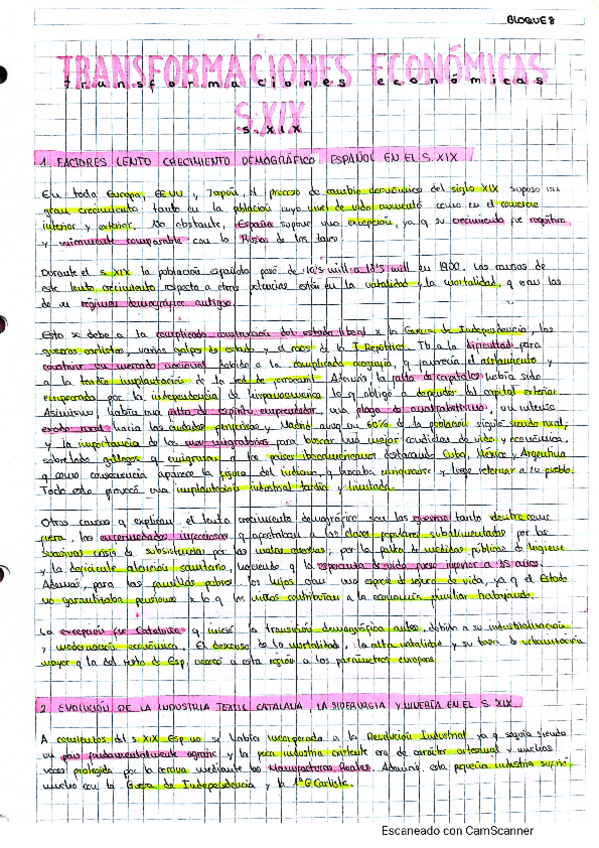 BLOQUE 8
TRANSFORMACIONES ECONÓMICAS
transformaciones económicas
S.XIX
s.xix
1 FACTORES LENTO CRECIMIENTO DEMOGRÁFICO ESPAÑOL EN EL S. XIX
En toda Europa, EEUU y Japón, el proceso de cambio económico del siglo XIX supuso un
gran crecimiento tanto en la población cuyo nivel de vida aumentó como en el comercio
interior y exterior. No obstante, España supuso una excepción, ya q su crecimiento fue
y únicamente comparable con la Rusia de los zares.
Durante el s. XIX la población española pasó de mill a 18'5 mill en 1900. Las causas de
este lento crecimiento respecto a otras potencias están en la natalidad y la mortalidad, q eran las
de un régimen demográfico antiguo.
Esto se debe a la complicada construcción del estado liberal x la Guerra de Independencia, las
guerras carlistas, varios golpes de estado y el caos de la I República. Tb a la dificultad para
construir un mercado nacional debido a la complicada orografía, q favorecía el aislamiento y
a la tardía implantación de la red de ferrocarril. Además, la falta de capitales había sido
empeorada por la independencia de Hispanoamérica lo q obligó a depender del capital exterior.
Asimismo, había una falta de espíritu emprendedor, una plaga de analfabetismo, un intenso
éxodo rural hacia las ciudades pequeñas y Madrid aunq un 60% de la población siguió siendo rural,
y la importancia de las migratorias para buscar una mejor condición de vida y económica,
sobretodo gallegos q emigraron a los países iberoamericanos destacando Cuba, México y Argentina
y como consecuencia aparece la figura del indiano, q buscaba enriquecerse y luego retornar a su pueblo.
Todo esto provocó una implantación industrial tardía y limitada.
Otras causas q explican el lento crecimiento demográfico son las guerras tanto dentro como
fuera, las enfermedades infecciosas q afectaban a las clases populares subalimentadas por las
sucesivas crisis de subsistencias por las malas cosechas; por la falta de medidas públicas de higiene
y la deficiente atención sanitaria, haciendo q la esperanza de vida fuese inferior a 35 años.
Además, para las familias pobres, los hijos eran una especie de seguro de vida, ya q el Estado
no garantizaba pensiones x lo q los niños contribuían a la economía familiar trabajando.
La excepción fue Cataluña q inició la transición demográfica antes, debido a su industrialización
y modernización económica. El descenso de la mortalidad, la alta natalidad y su tasa de urbanización
mayor q la del resto de Esp, acercó a esta región a los parámetros europeos
2 EVOLUCIÓN DE LA INDUSTRIA TEXTIL CATALANA, LA SIDERURGIA Y MINERÍA EN EL S. XIX
A comienzos del s. XIX Esp no se había incorporado a la Revolución Industrial ya q seguía siendo
un país fundamentalmente agrario y la poca industria existente era de carácter artesanal y muchas
veces protegida por la corona mediante las Manufacturas Reales. Además, esta pequeña industria sufrió
mucho con la Guerra de Independencia y la 1ª G Carlista.
Escaneado con CamScanner